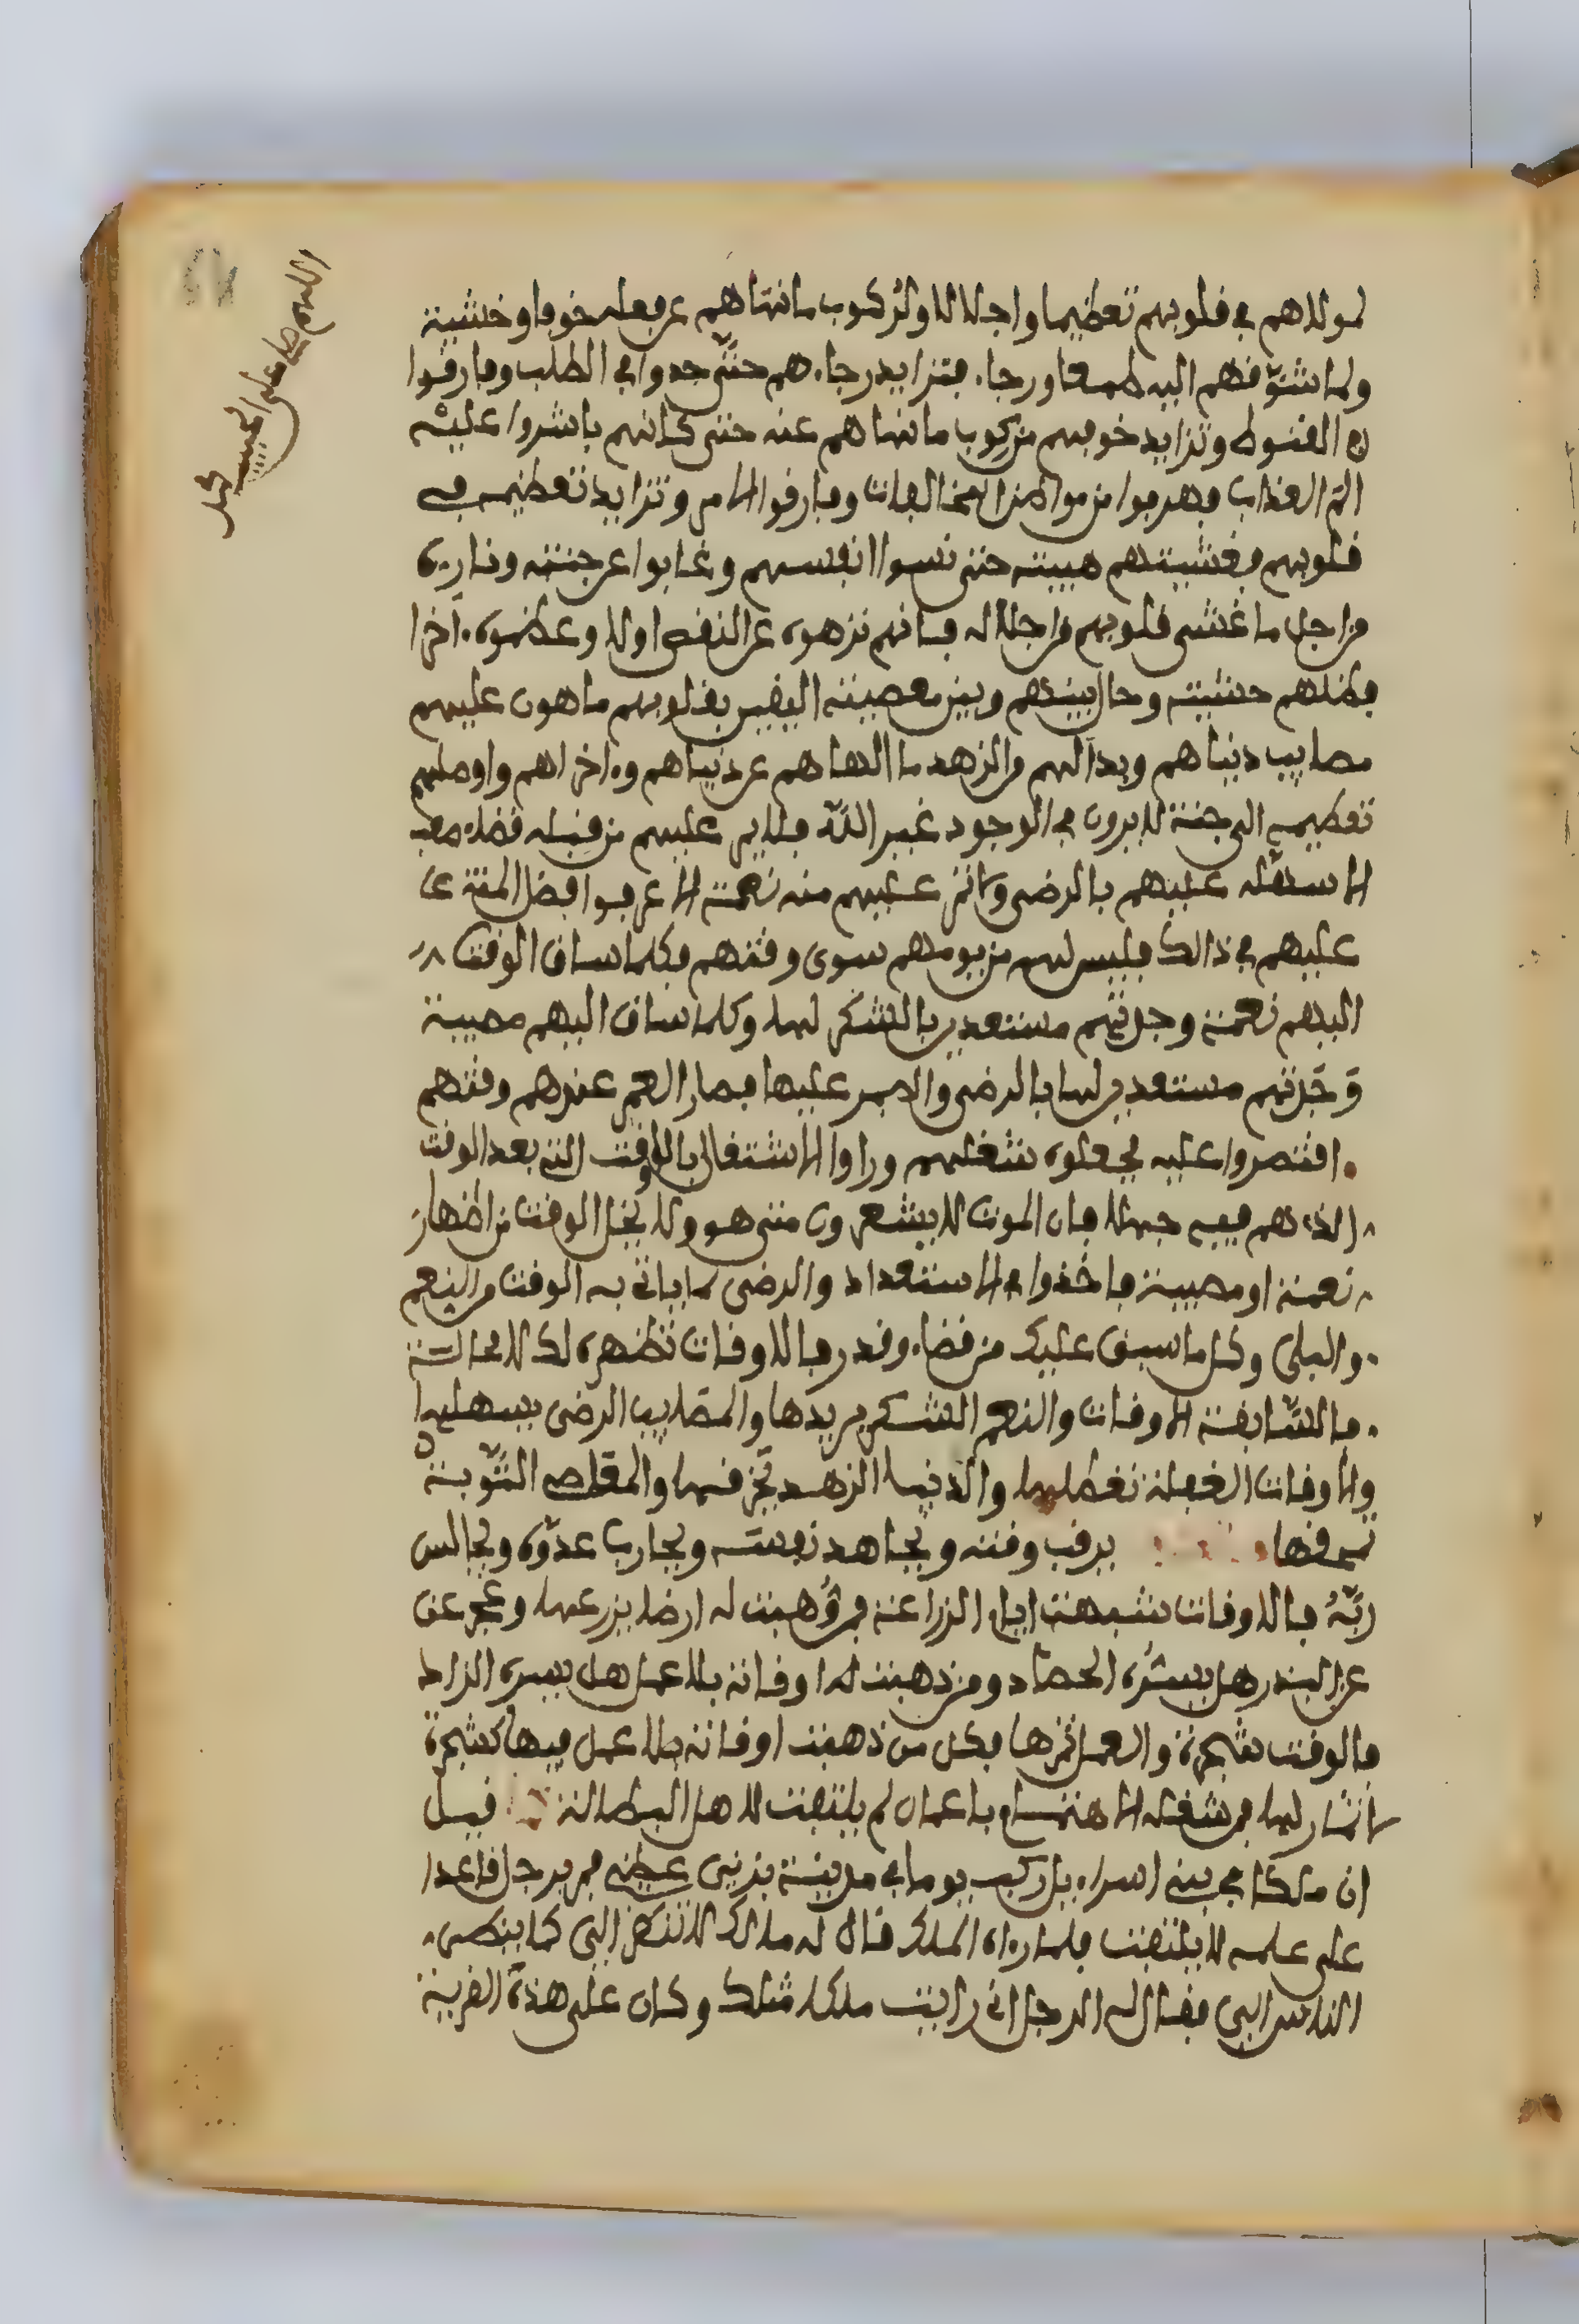 لمولاهم في قلوبهم تعظيما واجلالا ولركوب مانهاهم عن فعله خوفا وخشية
ولما شوّفهم اليه طمعا ورجاء فتزايد رجاءهم حتّى جدوا في الطلب وفارقوا
القنوط وتزايد خوفهم من ركوب مانهاهم عنه حتى كانهم باشروا عليه
الم العذاب فهربوا من مواطن المخالفات وفارقوا الامن وتزايد تعظيمه في
قلوبهم فغشيتهم هيبته حتى نسوا انفسهم وغابوا عن جنته وناره
من اجل ما غشى قلوبهم من اجلاله فانهم نزهوه عن النقص اولا وعظموه ءاخرا
حشيته وحال بينهم وبين معصيته اليقين بقلوبهم ما هون عليهم
مصايب دنياهم وبدا لهم من الزهد ما الهاهم عن دنياهم وءاخراهم واوصلهم
تعظيمه الى جنة لا يرون في الوجود غير اللّه فلا يمر عليهم من قبله قضاء صعب
الا سهله عليهم بالرضى ولا تمر عليهم منه نعمة الا عرفوا فضل المنة
عليهم في ذالك فليس لهم من يومهم سوى وقتهم فكلما ساق الوقت
اليهم نعمة وجدتهم مستعدين بالشكر لها وكلما ساق اليهم مصيبة
وجدتهم مستعدين لها بالرضى والصبر عليها فصار العمر عندهم وقتهم
اقتصروا عليه فجعلوه شغلهم وراوا الاشتغال بالوقت الذي بعد الوقت
الذي هم فيه جهلا فان الموت لا يشعرون متى هو ولا يخل الوقت من اظهار
نعمة او مصيبة فاخذوا في الاستعداد والرضى لما ياتى به الوقت من النعم
والبلى وكل ما سبق عليك من قضاء وقدر فالاوقات تظهره لك لا محالة
فالسّابقة الاوقات والنعم الشكر يزيدها والمصايب الرضى يسهلها
والاوقات الغفلة تعطلها والدنيا الزهد يمزقها والمعاصي التّوبة
تمحقها يرقب وقته ويجاهد نفسه ويحارب عدوّه ويجالس
ربّه فالاوقات شبهت ايام الزراعة فمن وُهبت له ارضا يزرعها وعجز
عن البذر هل يسرّه الحصاد ومن ذهبت له اوقاته بلا عمل هل يسره الزاد
فالوقت شجرة والعمل ثمرها فكل من ذهبت اوقاته بلا عمل فيها كشجرة
لا ثمار لها فمن شغله الاهتمام باعماله لم يلتفت لاهل البطالة قيل
ان ملكا في بنى اسراءيل ركب يوما في مدينة بزي عظيم فمر برجل قاعدا
على عمله لا يلتفت فلما رءاه الملك قال له مالك لا تنظر الي كما ينظر
الناس الي فقال له الرجل اني رايت ملكا مثلك وكان على هذه القرية
اللهم صل على الحبيب محمد